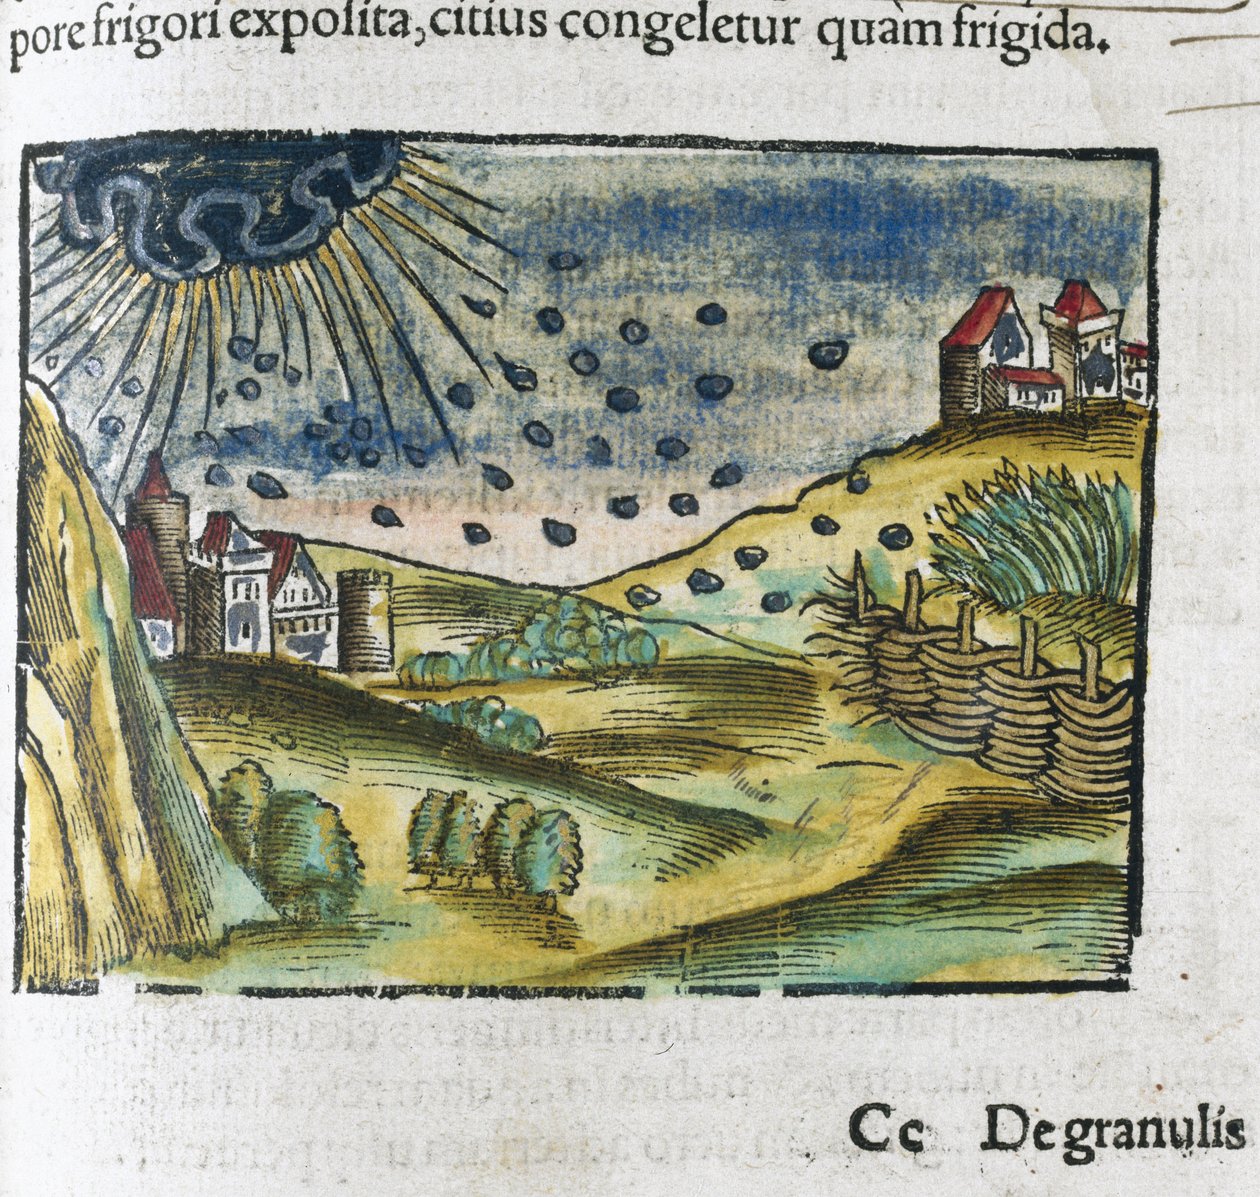 pore frigori expolita, citius congeletur quàm frigida.
Cc De granulis